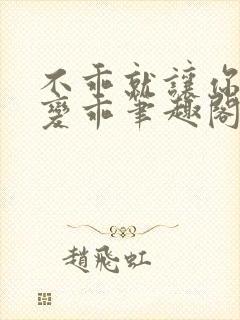 不乖就讓你
變乖筆趣閣
趙飛虹